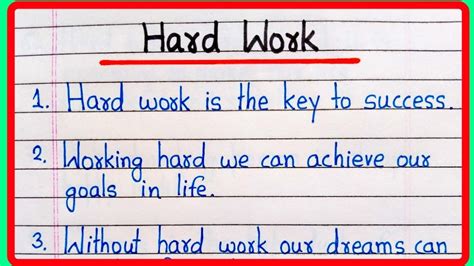 Hard Work
1. Hard work is the key to success.
2. Working hard we can achieve our
goals in life.
3. Without hard work our dreams can